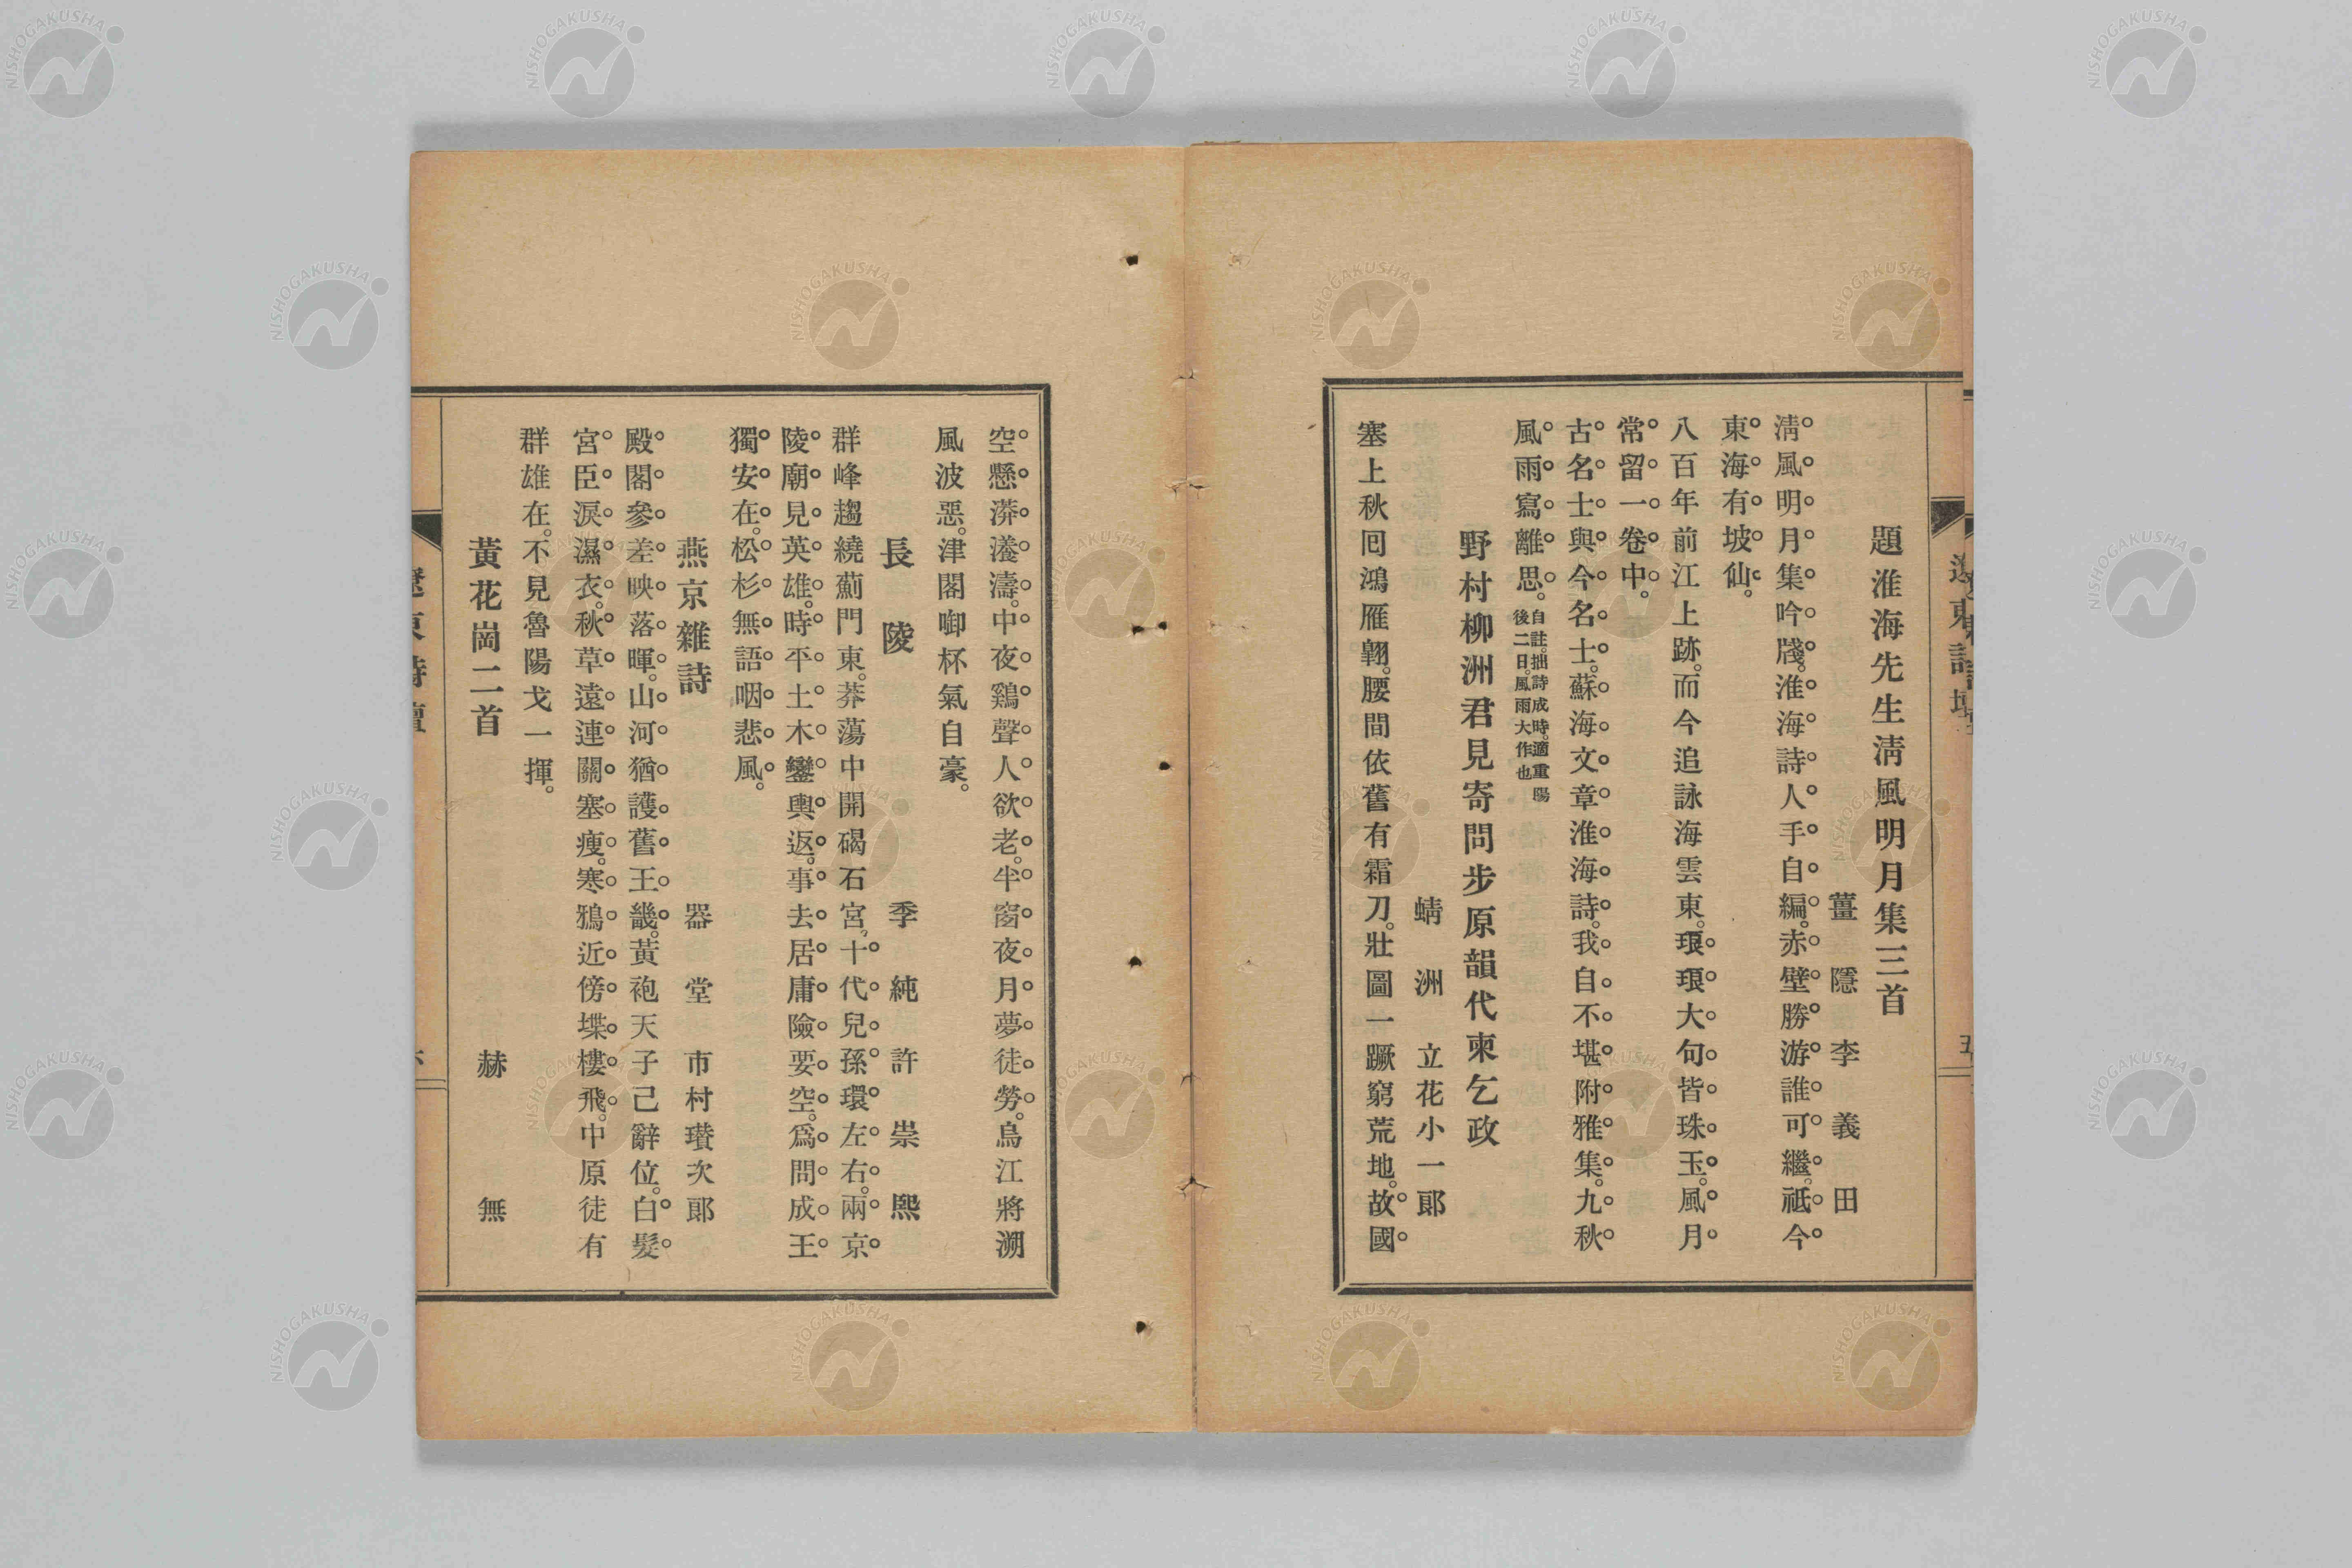 題淮海先生淸風明月集三首
薑隱李義田
淸風明月集吟牋。淮海詩人手自編。赤壁勝游誰可繼。祗今
東海有坡仙。
八百年前江上跡。而今追詠海雲東。琅琅大句皆珠玉。風月
常留一卷中。
古名士與今名士。蘇海文章淮海詩。我自不堪附雅集。九秋
風雨寫離思。自註。拙詩成時。適重陽
後二日。風雨大作也
野村柳洲君見寄問步原韻代柬乞政
蜻洲立花小一郞
塞上秋囘鴻雁翺。腰間依舊有霜刀。壯圖一蹶窮荒地。故國
空懸漭瀁濤。中夜鷄聲人欲老。半窗夜月夢徒勞。烏江將溯
風波惡。津閣啣杯氣自豪。
長陵
季純許崇熙
群峰趨繞薊門東。莽蕩中開碣石宮。十代兒孫環左右。兩京
陵廟見英雄。時平土木鑾輿返。事去居庸險要空。爲問成王
獨安在。松杉無語咽悲風。
燕京雜詩
器堂市村瓚次郞
殿閣參差映落暉。山河猶護舊王畿。黃袍天子己辭位。白髮
宮臣淚濕衣。秋草遠連關塞瘦。寒鴉近傍堞樓飛。中原徒有
群雄在。不見魯陽戈一揮。
黃花崗二首
赫無